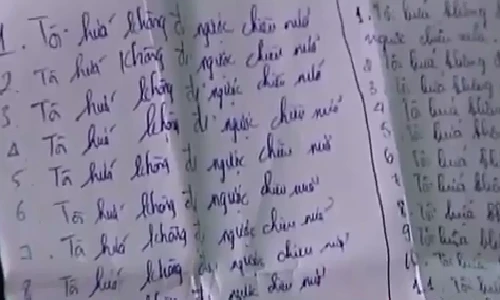 1. Tôi hứa không đi ngược chiều nữa
2. Tôi hứa không đi ngược chiều nữa
3. Tôi hứa không đi ngược chiều nữa
4 Tôi hứa không đi ngược chiều nữa
5 Tôi hứa không đi ngược chiều nữa
6 Tôi hứa không đi ngược chiều nữa
7. Tôi hứa không đi ngược chiều nữa
8 Tôi hứa không đi ngược chiều nữa
1. Tôi hứa không
ngược chiều nữa
2 Tôi hứa không đ
3. Tôi hứa không
4 Tôi hứa không
5. Tôi hứa
6 Tôi hứa
7 Tôi hứa
8. Tôi hứa
9 Tôi hứa
10. Tôi hứa
11. Tôi